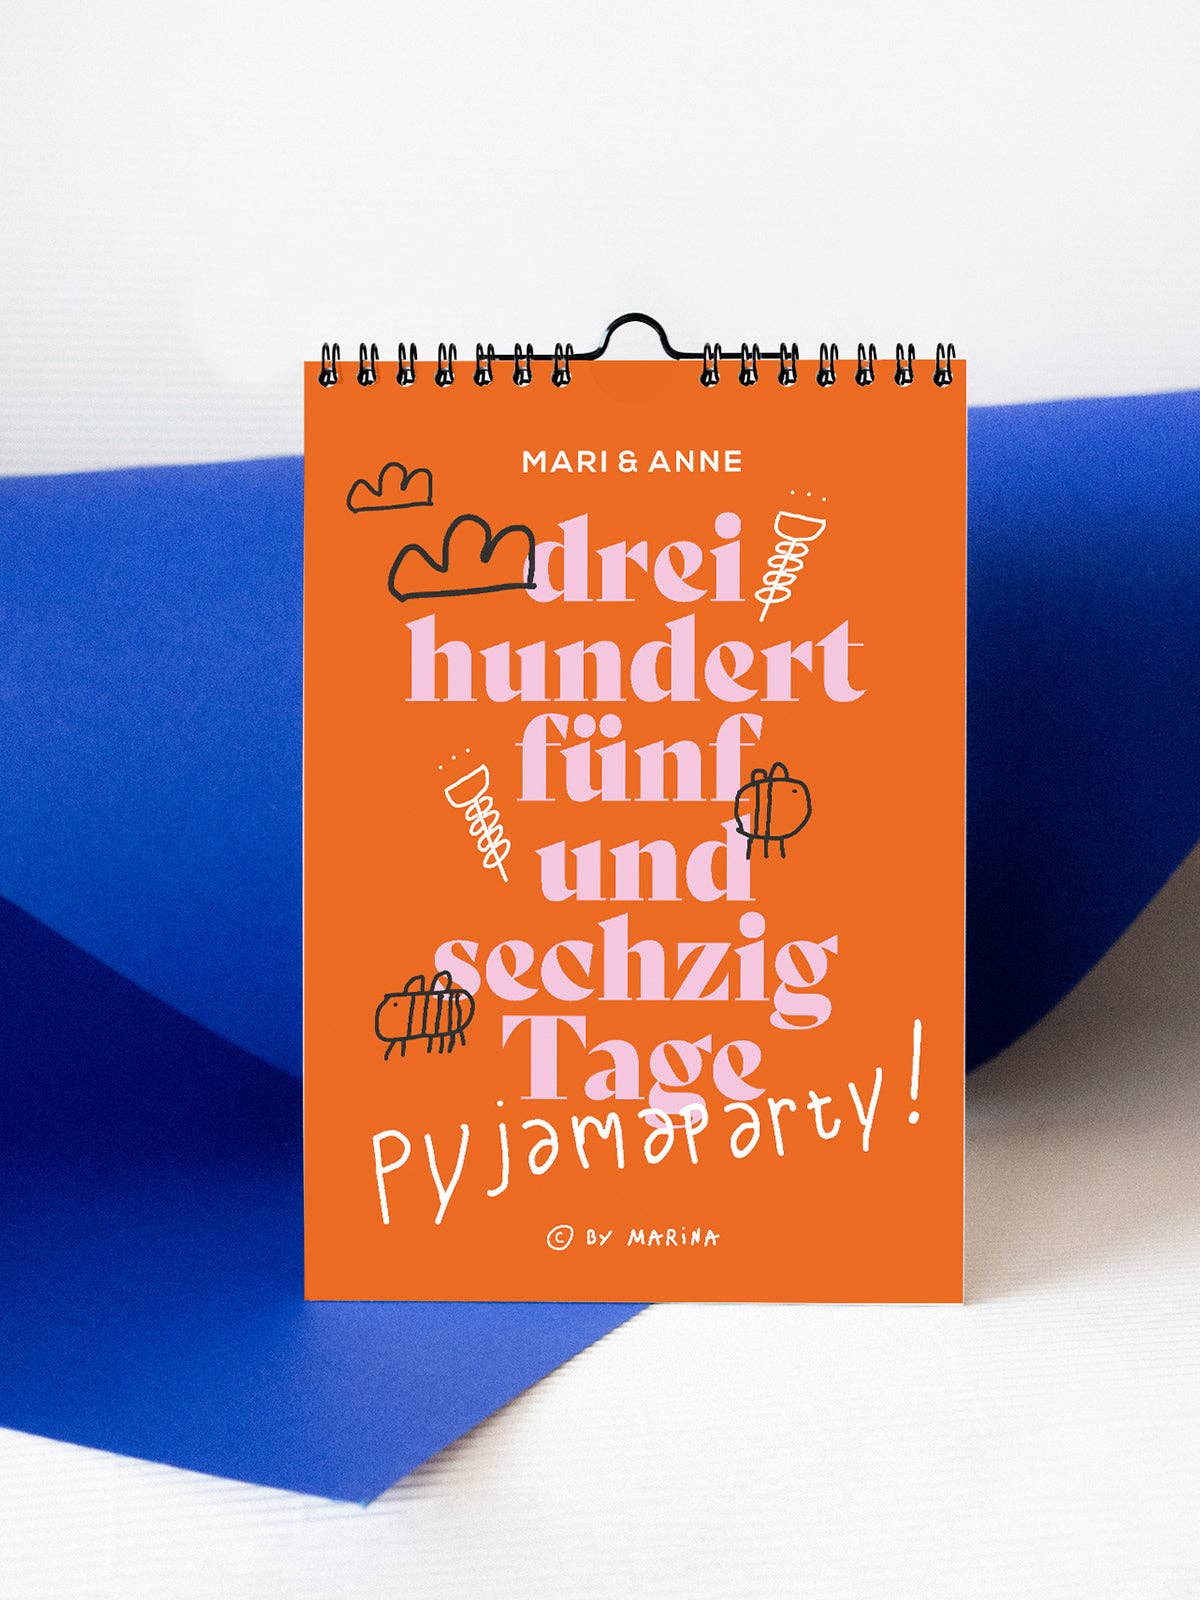 MARI & ANNE
drei
hundert
fünf
und
sechzig
Tage
Pyjamaparty!
© BY MARiNA